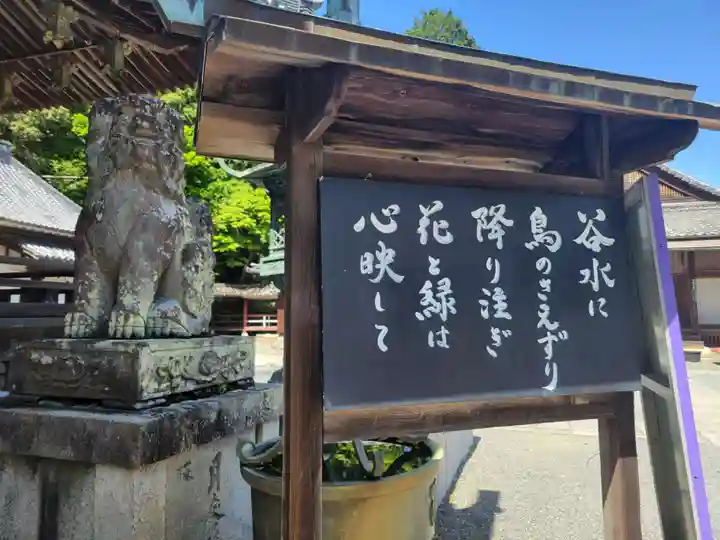 谷水に
鳥のさえずり
降り注ぎ
花と緑は
心映して